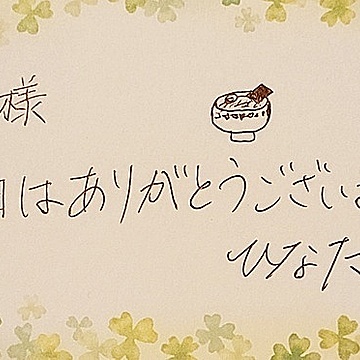 様
日はありがとうございま
ひなた